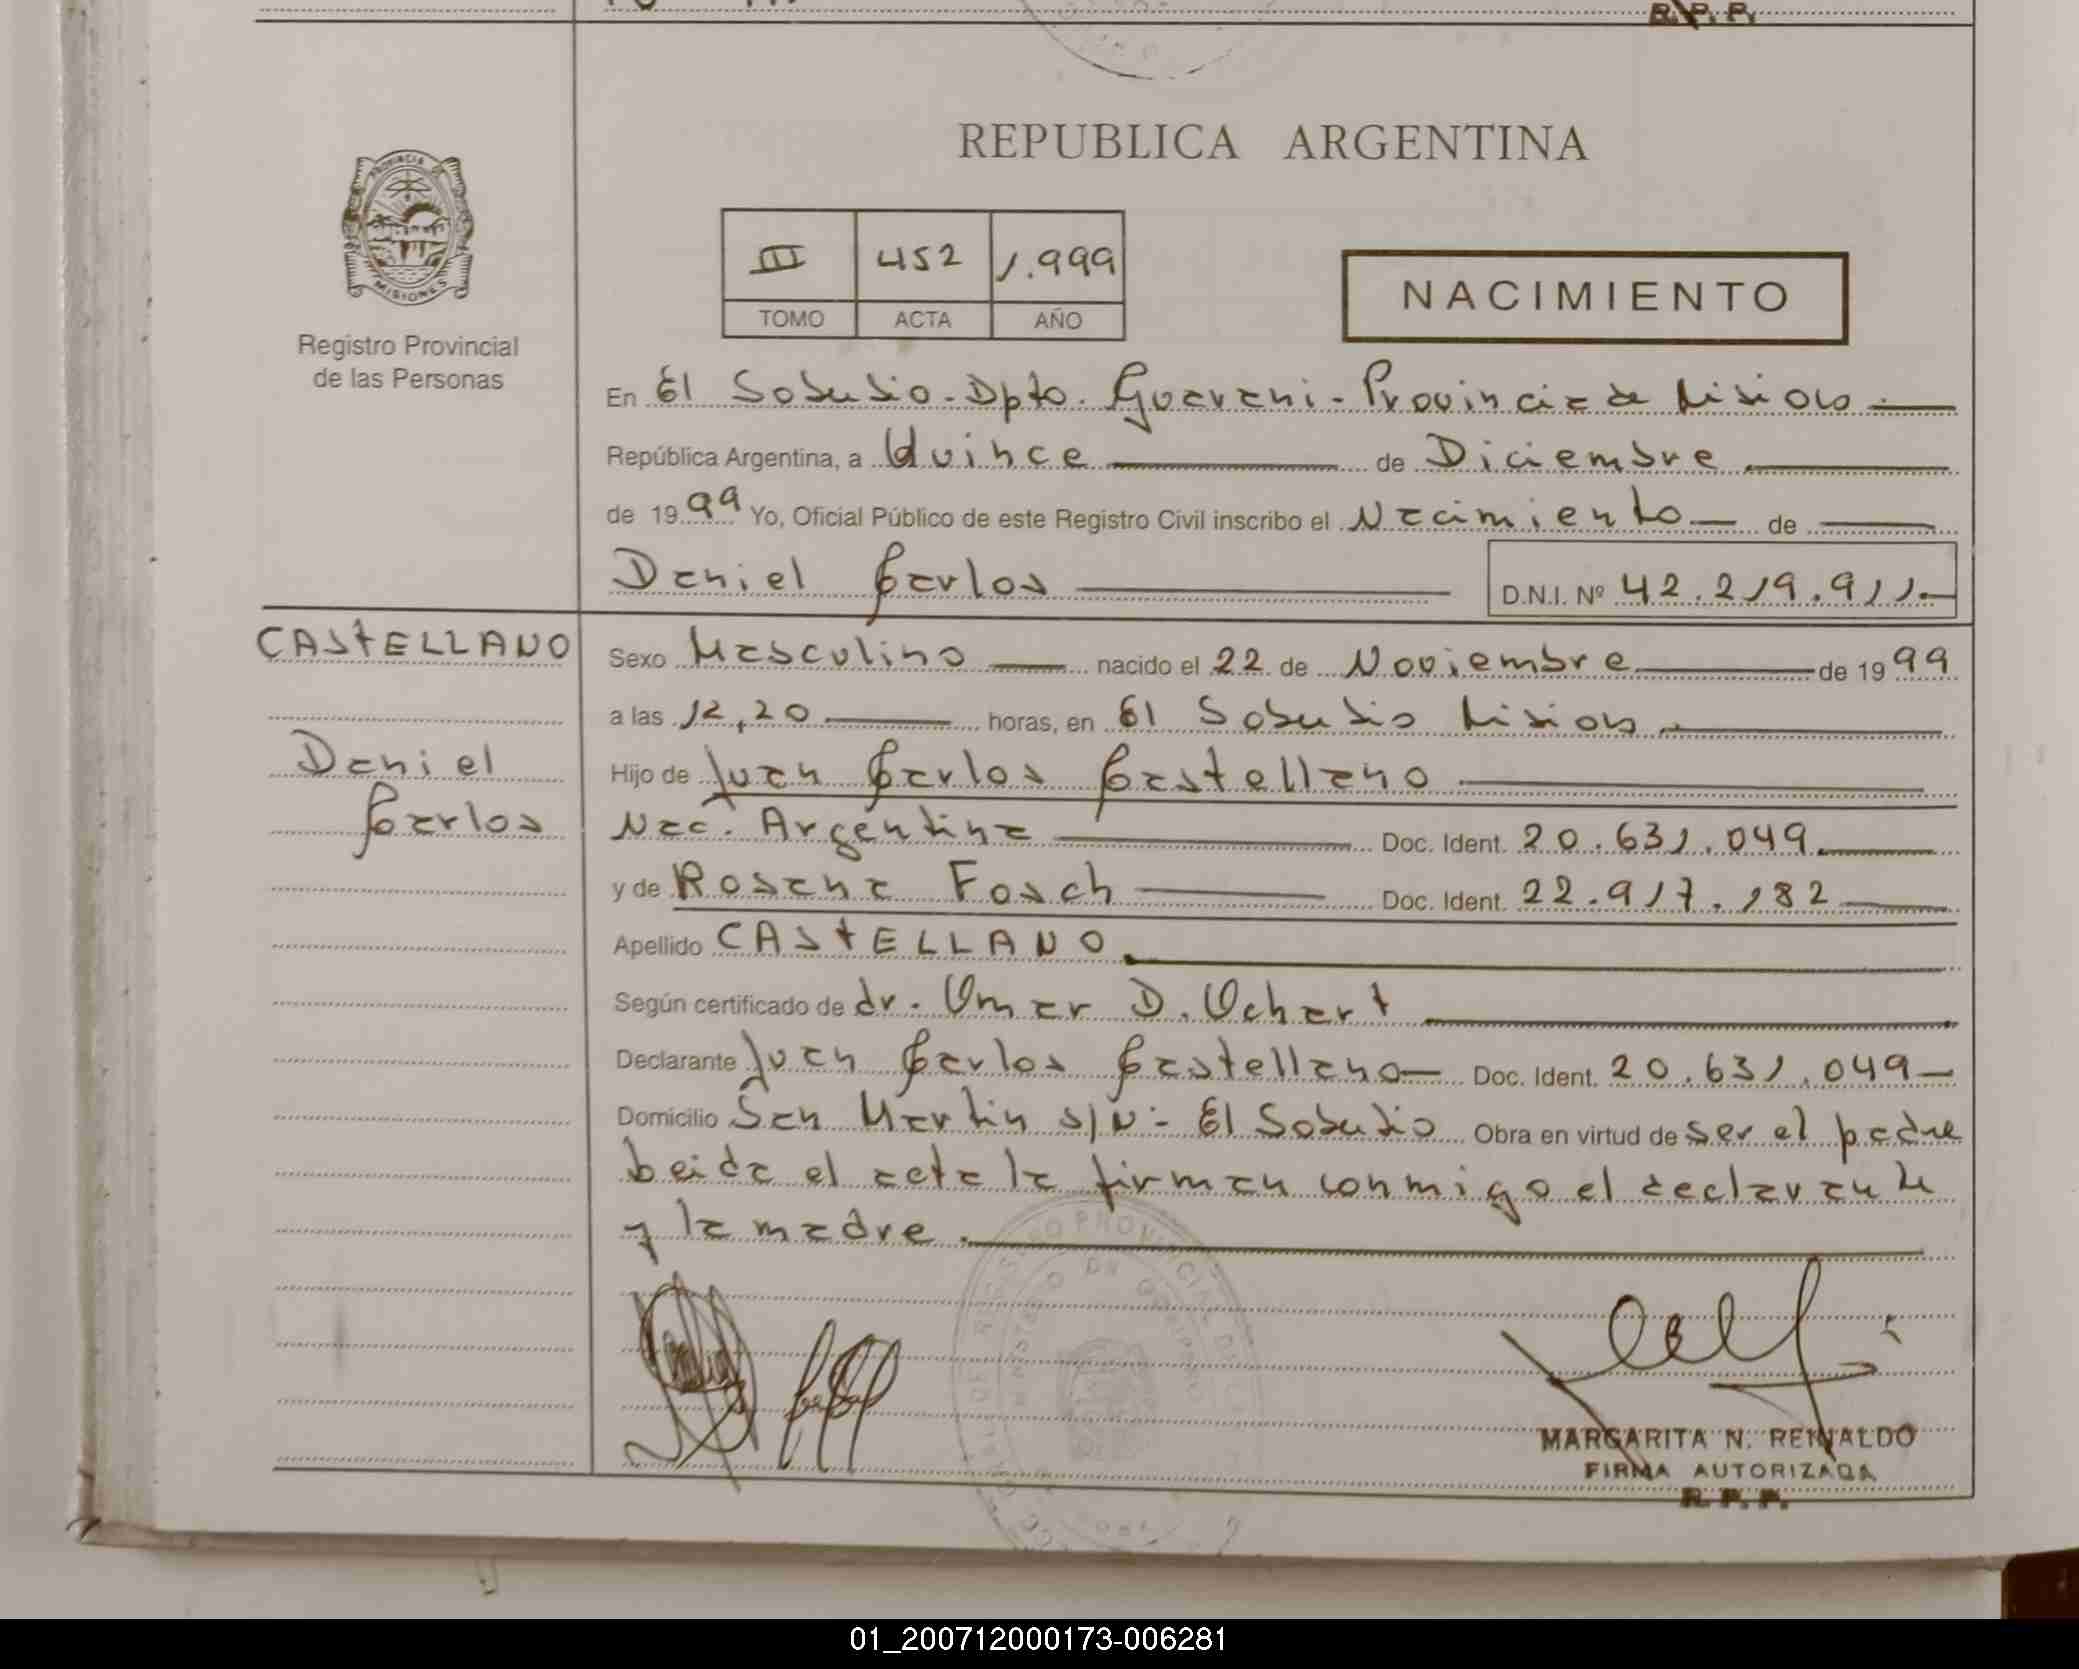 R.P.P.
REPUBLICA ARGENTINA
PROVINCIA DE
MISIONES
Registro Provincial
de las Personas
III 452 1.999
TOMO ACTA AÑO
NACIMIENTO
En El Soberbio - Dpto. Guarani - Provincia de Misiones
República Argentina, a Quince de Diciembre
de 1999 Yo, Oficial Público de este Registro Civil inscribo el Nacimiento de
Daniel Carlos D.N.I. Nº 42.219.911.-
CASTELLANO
Daniel
Carlos
Sexo Masculino nacido el 22 de Noviembre de 1999
a las 12,20 horas, en El Soberbio Misiones.
Hijo de Juan Carlos Castellano
Nac. Argentina Doc. Ident. 20.631.049.
y de Rosana Fosch Doc. Ident. 22.917.182
Apellido CASTELLANO.
Según certificado de dr. Omar D. Ochart
Declarante Juan Carlos Castellano Doc. Ident. 20.631.049
Domicilio San Martin s/N - El Soberbio Obra en virtud de ser el padre
Leida el acta la firman conmigo el declarante
y la madre.
MARGARITA N. REINALDO
FIRMA AUTORIZADA
R.P.P.
01_200712000173-006281